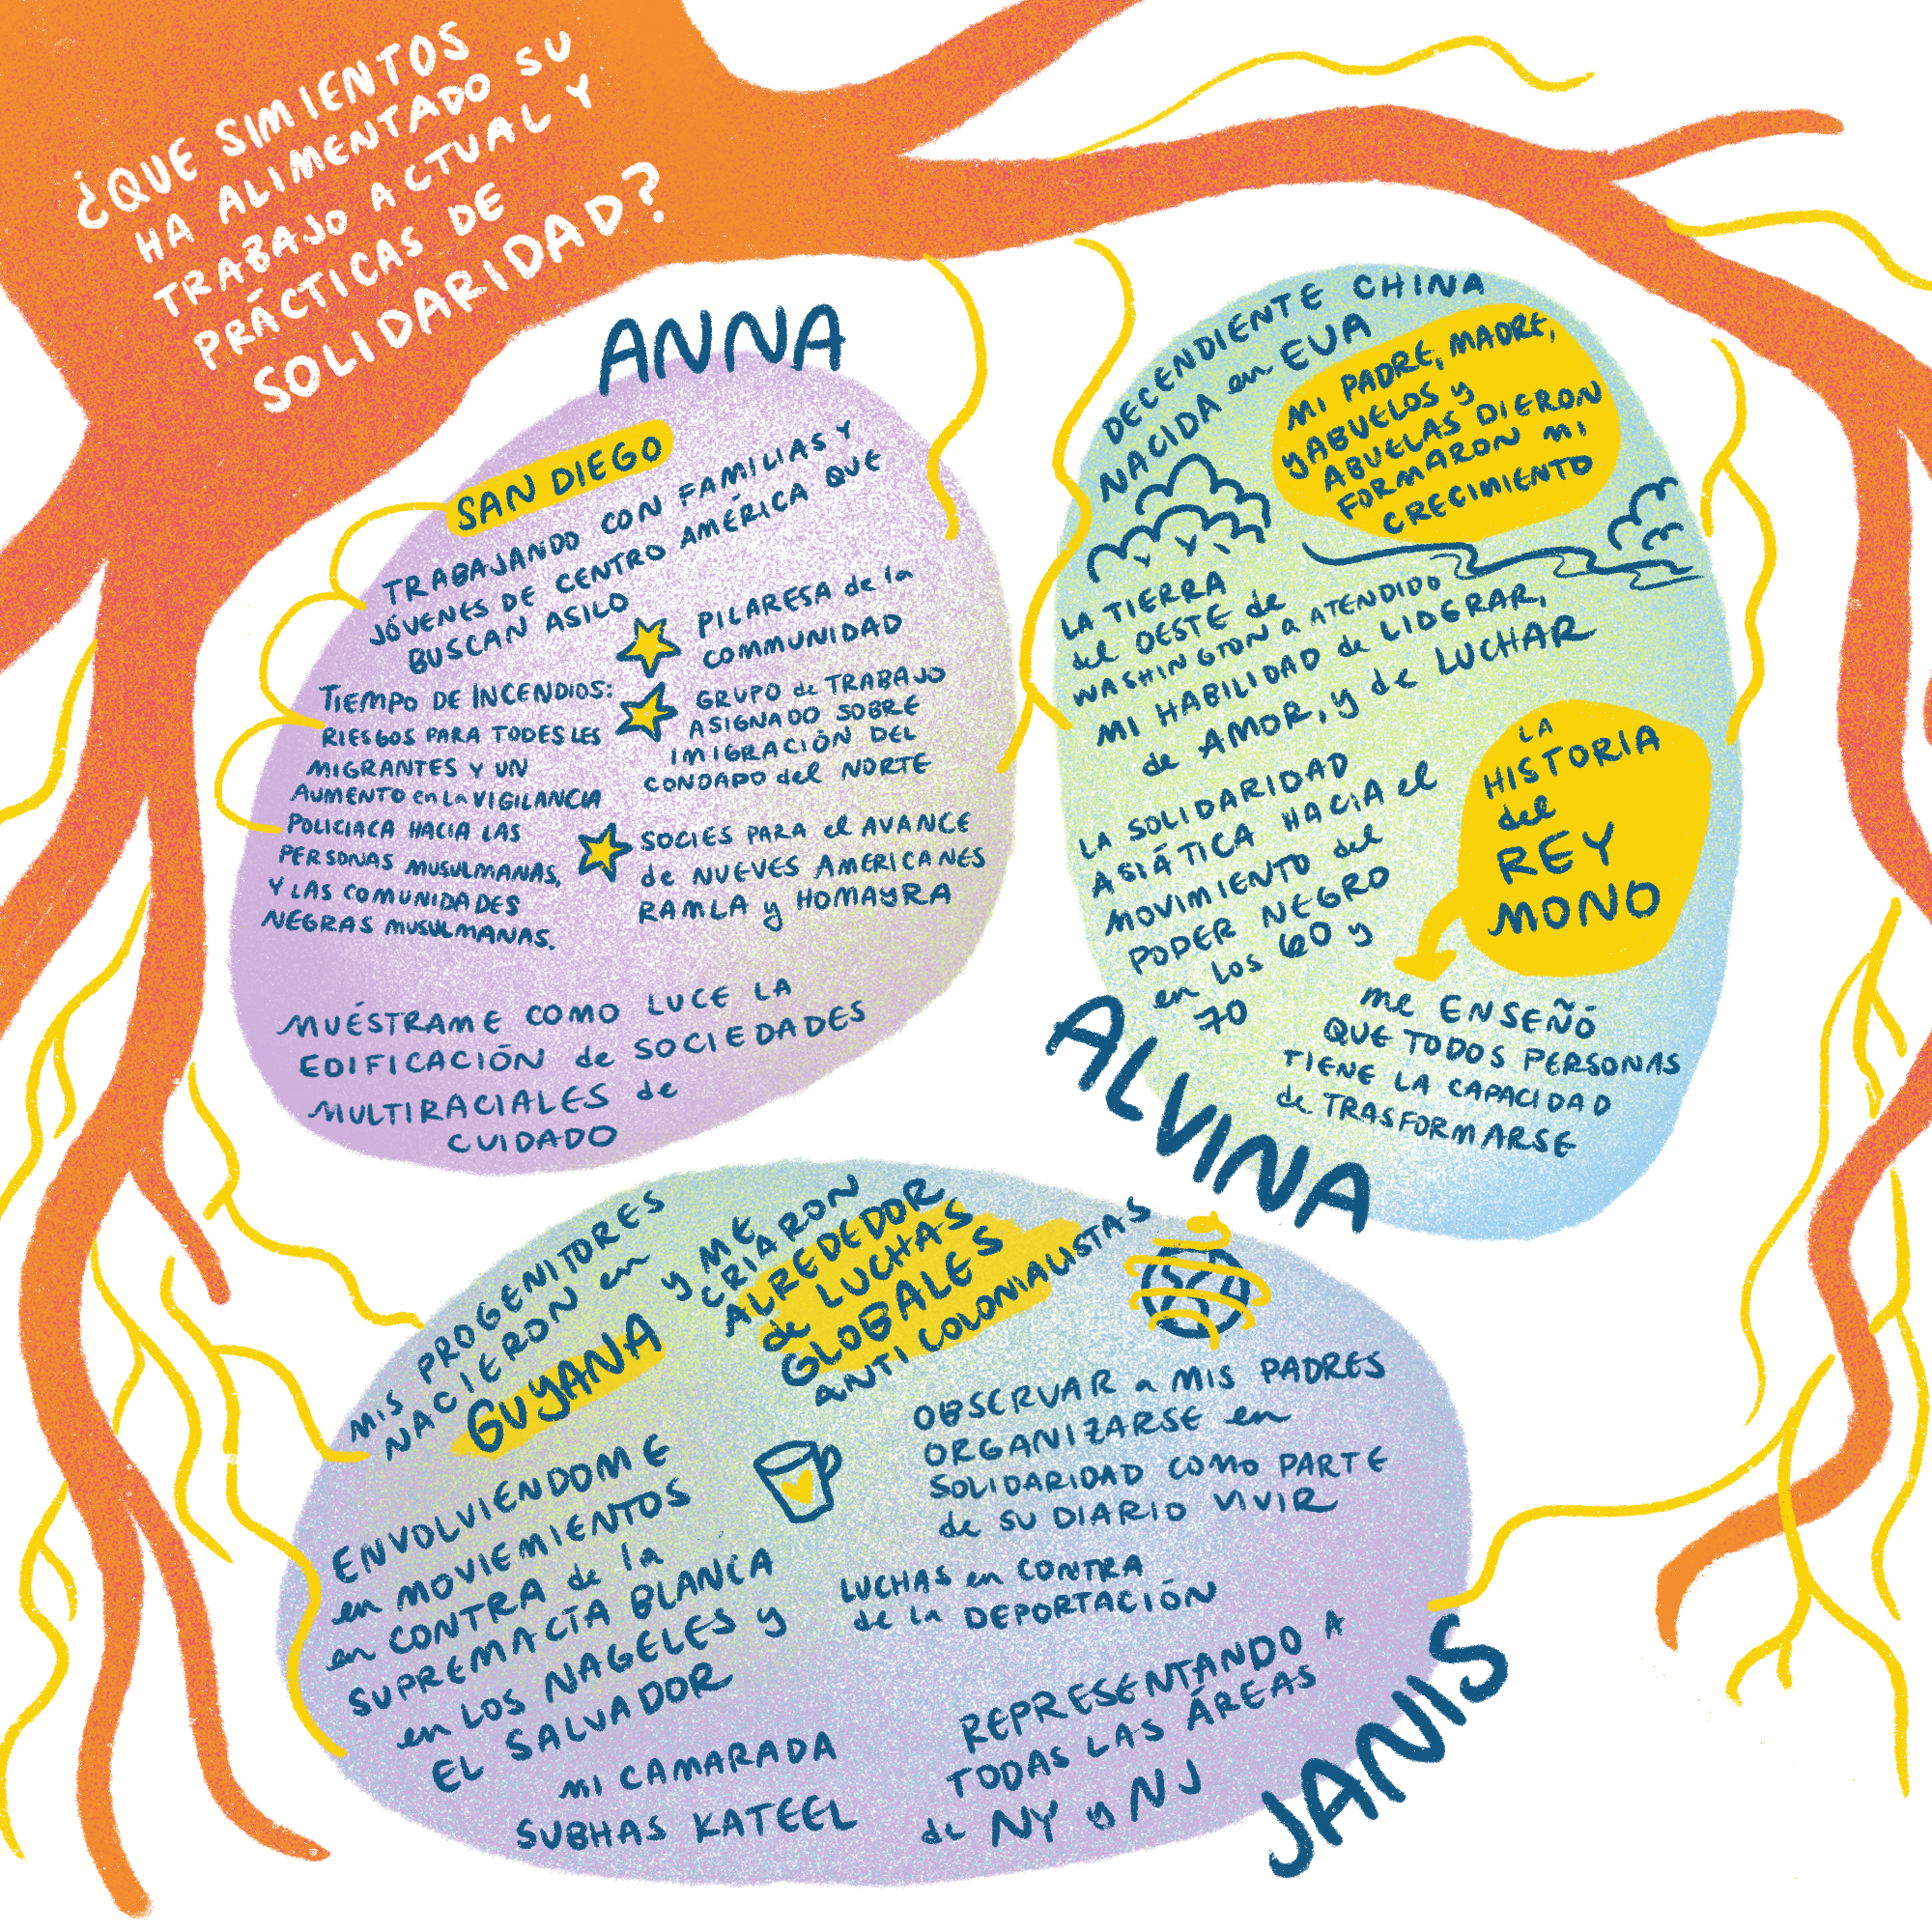 ¿QUE SIMIENTOS
HA ALIMENTADO SU
TRABAJO ACTUAL Y
PRÁCTICAS DE
SOLIDARIDAD?
ANNA
SAN DIEGO
TRABAJANDO CON FAMILIAS Y
JÓVENES DE CENTRO AMÉRICA QUE
BUSCAN ASILO
TIEMPO DE INCENDIOS:
RIESGOS PARA TODES LES
MIGRANTES Y UN
AUMENTO en La VIGILANCIA
POLICIACA HACIA LAS
PERSONAS MUSULMANAS,
Y LAS COMUNIDADES
NEGRAS MUSULMANAS.
PILARESA de la
COMMUNIDAD
GRUPO de TRABAJO
ASIGNADO SOBRE
IMIGRACIÓN DEL
CONDADO del NORTE
SOCIES PARA el AVANCE
de NUEVES AMERICANES
RAMLA y HOMAYRA
MUÉSTRAME COMO LUCE LA
EDIFICACIÓN de SOCIEDADES
MULTIRACIALES de
CUIDADO
DECENDIENTE CHINA
NACIDA en EUA
MI PADRE, MADRE,
yABUELOS y
ABUELAS DIERON
FORMARON MI
CRECIMIENTO
LA TIERRA
del OESTE de
WASHINGTON a ATENDIDO
MI HABILIDAD de LIDERAR,
de AMOR, y de LUCHAR
LA SOLIDARIDAD
ASIÁTICA HACIA el
MOVIMIENTO del
PODER NEGRO
en los 60 y
70
LA
HISTORIA
del
REY
MONO
me ENSEÑÓ
QUE TODOS PERSONAS
TIENE LA CAPACIDAD
de TRASFORMARSE
ALVINA
MIS PROGENITORES
NACIERON en
GUYANA
y ME
CRIARON
ALREDEDOR
de LUCHAS
GLOBALES
ANTI COLONIALISTAS
OBSERVAR a MIS PADRES
ORGANIZARSE en
SOLIDARIDAD COMO PARTE
de SU DIARIO VIVIR
ENVOLVIENDOME
en MOVIEMIENTOS
en CONTRA de la
SUPREMACÍA BLANCA
en LOS NAGELES y
EL SALVADOR
LUCHAS en CONTRA
de la DEPORTACIÓN
MI CAMARADA
SUBHAS KATEEL
REPRESENTANDO A
TODAS LAS ÁREAS
de NY y NJ
JANIS